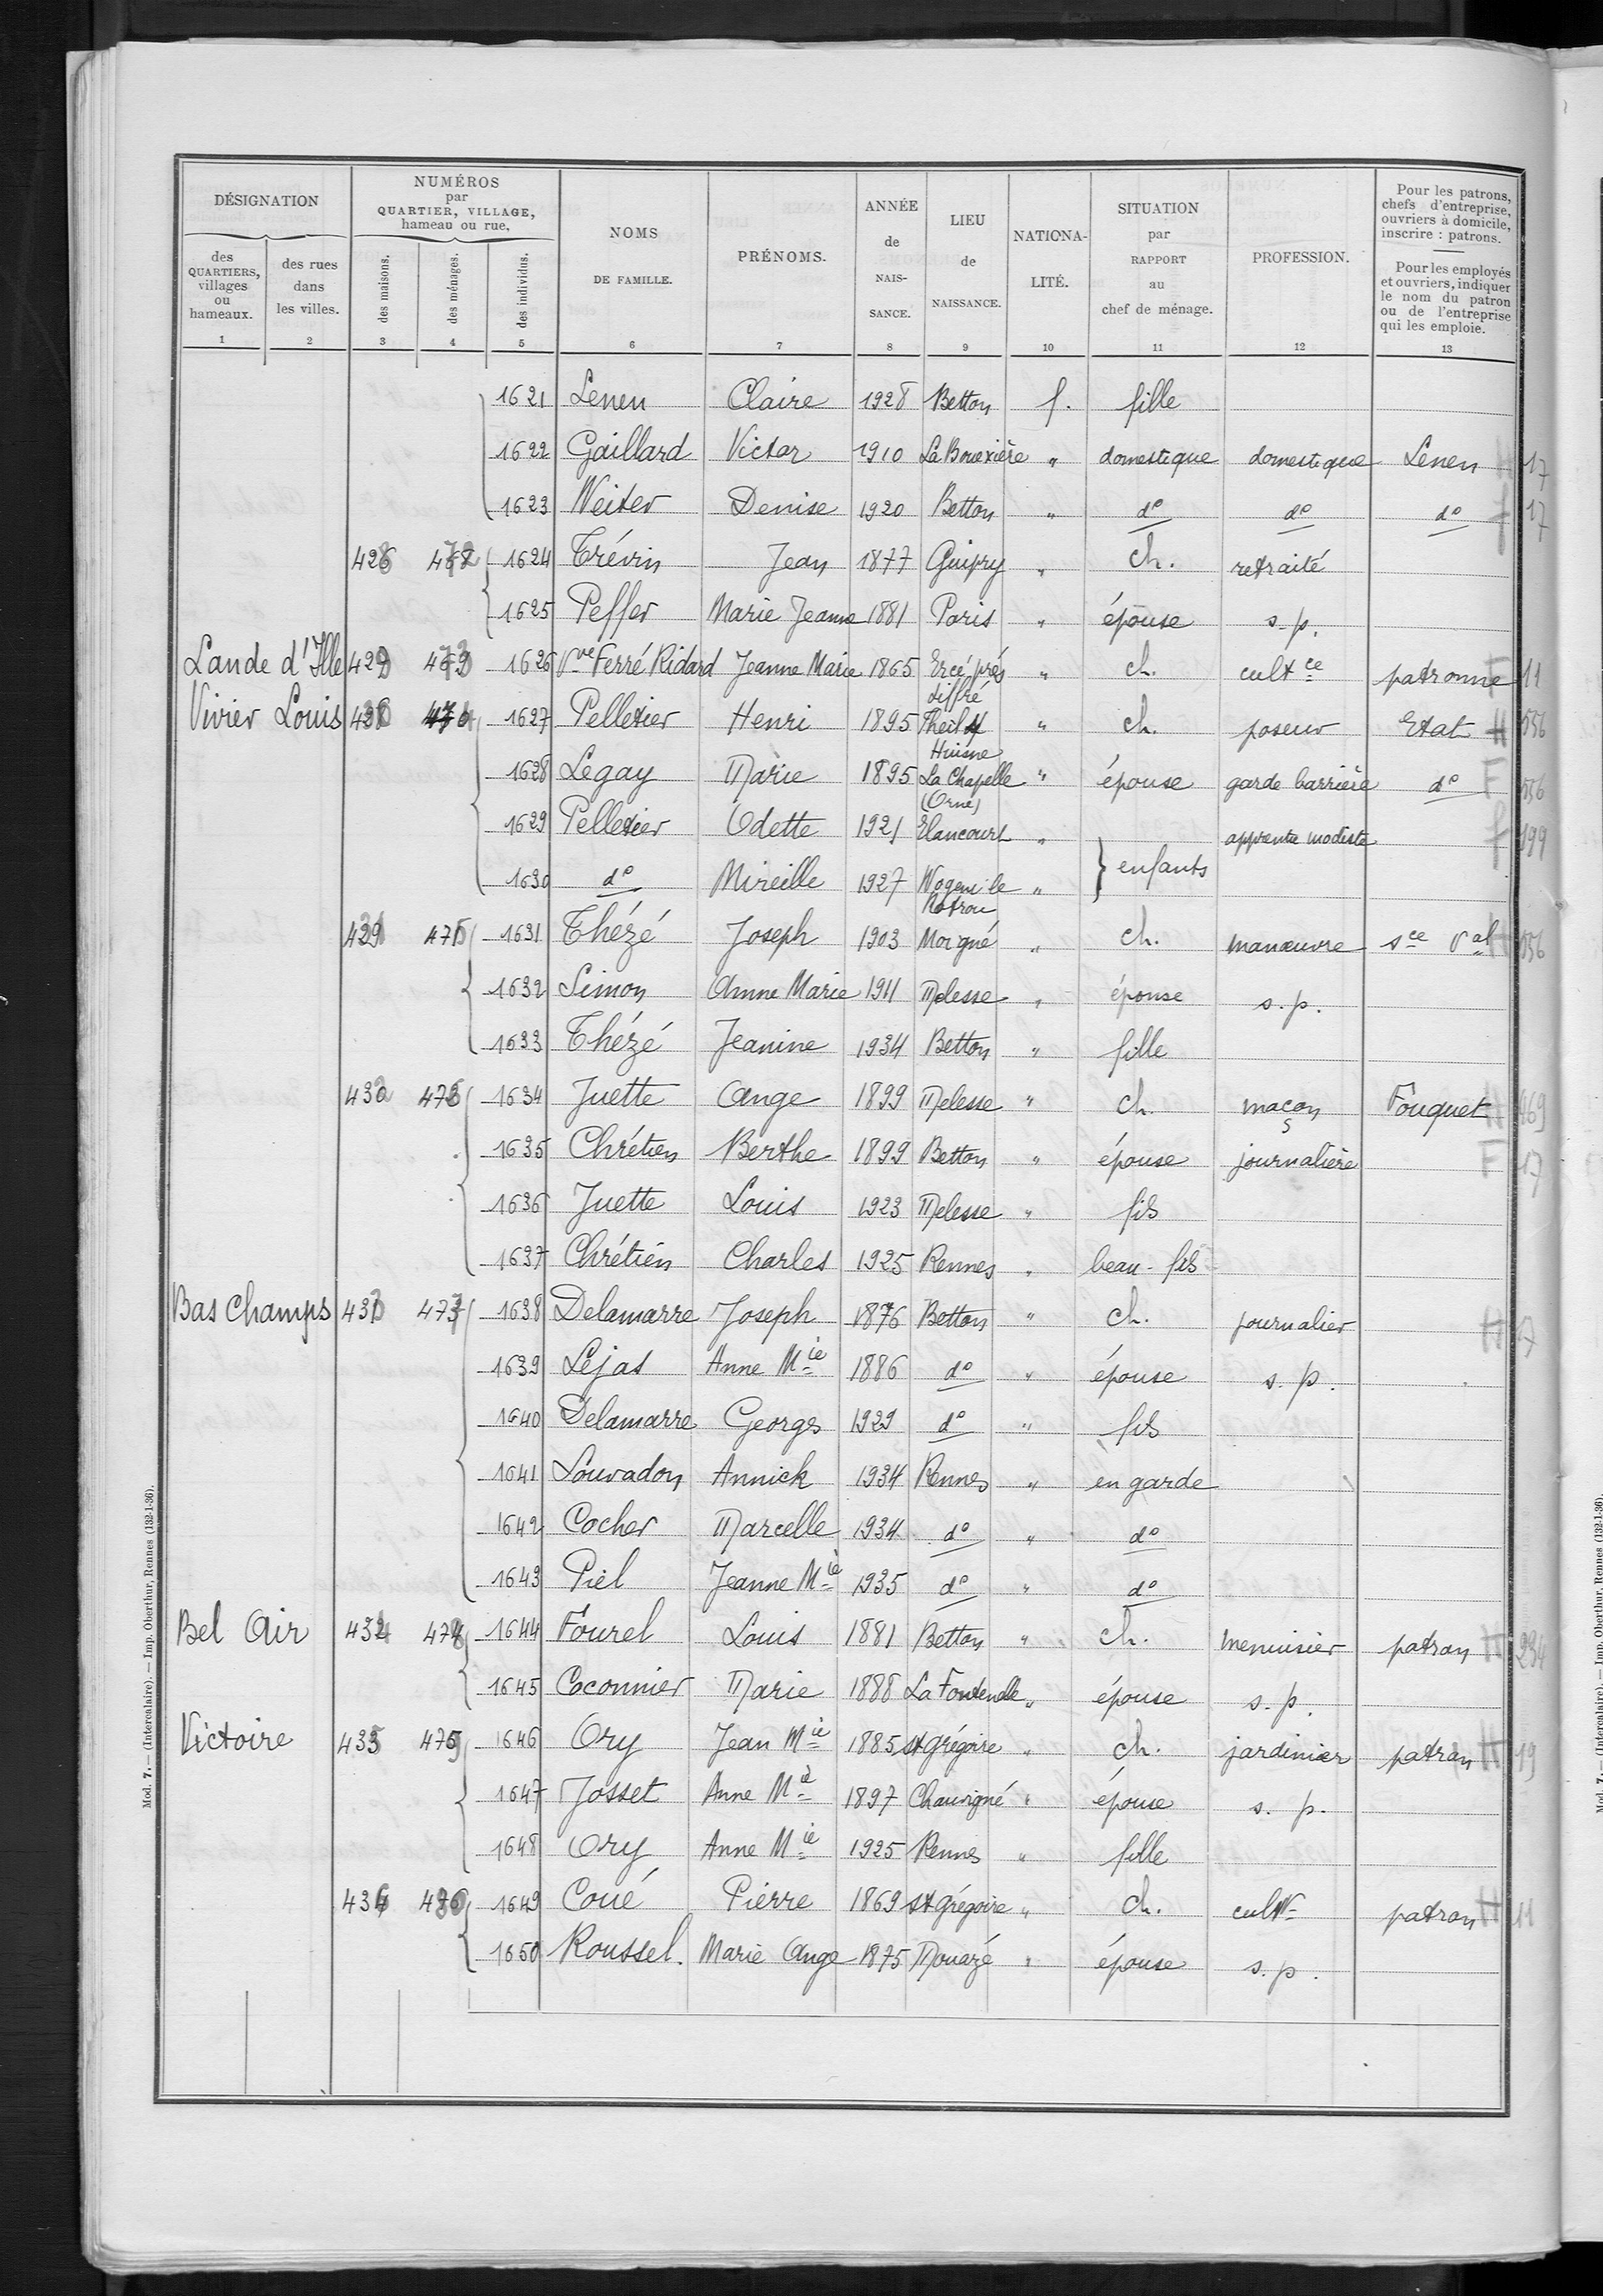 DÉSIGNATION
NUMÉROS par QUARTIER, VILLAGE, hameau ou rue.
des QUARTIERS, villages ou hameaux. 1
des rues dans les villes. 2
des maisons. 3
des ménages. 4
des individus. 5
NOMS DE FAMILLE. 6
PRÉNOMS. 7
ANNÉE de NAIS- SANCE. 8
LIEU de NAISSANCE. 9
NATIONA- LITÉ. 10
SITUATION par RAPPORT au chef de ménage. 11
PROFESSION. 12
Pour les patrons, chefs d'entreprise, ouvriers à domicile, inscrire : patrons.
Pour les employés et ouvriers, indiquer le nom du patron ou de l'entreprise qui les emploie. 13
1621 Lenen Claire 1928 Betton f. fille
1622 Gaillard Victor 1910 La Bouexière " domestique domestique Lenen H 17
1623 Weiter Denise 1920 Betton " do do do f 17
1624 Trévin Jean 1877 Guipry " ch. retraité
1625 Peffer Marie Jeanne 1881 Paris " épouse s.p.
Lande d'Ille 1626 Vve Ferré Ridard Jeanne Marie 1865 Ercé près Liffré " ch. cultce patronne F 11
Vivier Louis 1627 Pelletier Henri 1895 Theil s/ Huisne " ch. poseur Etat H 556
1628 Legay Marie 1895 La Chapelle (Orne) " épouse garde barrière do F 556
1629 Pelletier Odette 1921 Elancourt " } enfants apprentie modiste f 199
1630 do Mireille 1927 Nogent le Rotrou "
1631 Thézé Joseph 1903 Moigné " ch. manœuvre sce val H 556
1632 Simon Anne Marie 1911 Melesse " épouse s.p.
1633 Thézé Jeanine 1934 Betton " fille
1634 Juette Ange 1899 Melesse " ch. maçon Fouquet H 469
1635 Chrétien Berthe 1899 Betton " épouse journalière F 17
1636 Juette Louis 1923 Melesse " fils
1637 Chrétien Charles 1925 Rennes " beau-fils
Bas Champs 1638 Delamarre Joseph 1876 Betton " ch. journalier H 17
1639 Lejas Anne Mie 1886 do " épouse s.p.
1640 Delamarre Georges 1929 do " fils
1641 Louvadon Annick 1934 Rennes " en garde
1642 Cocher Marcelle 1934 do " do
1643 Piel Jeanne Mie 1935 do " do
Bel Air 1644 Fourel Louis 1881 Betton " ch. menuisier patron H 234
1645 Coconnier Marie 1888 La Fontenelle " épouse s.p.
Victoire 1646 Ory Jean Mie 1885 St Grégoire " ch. jardinier patron H 19
1647 Josset Anne Mie 1897 Chauvigné " épouse s.p.
1648 Ory Anne Mie 1925 Rennes " fille
1649 Coué Pierre 1869 St Grégoire " ch. cultr patron H 11
1650 Roussel. Marie Ange 1875 Mouazé " épouse s.p.
Mod. 7. — (Intercalaire). — Imp. Oberthur, Rennes (132-1-36).
Mod. 7. — (Intercalaire). — Imp. Oberthur, Rennes (132-1-36).